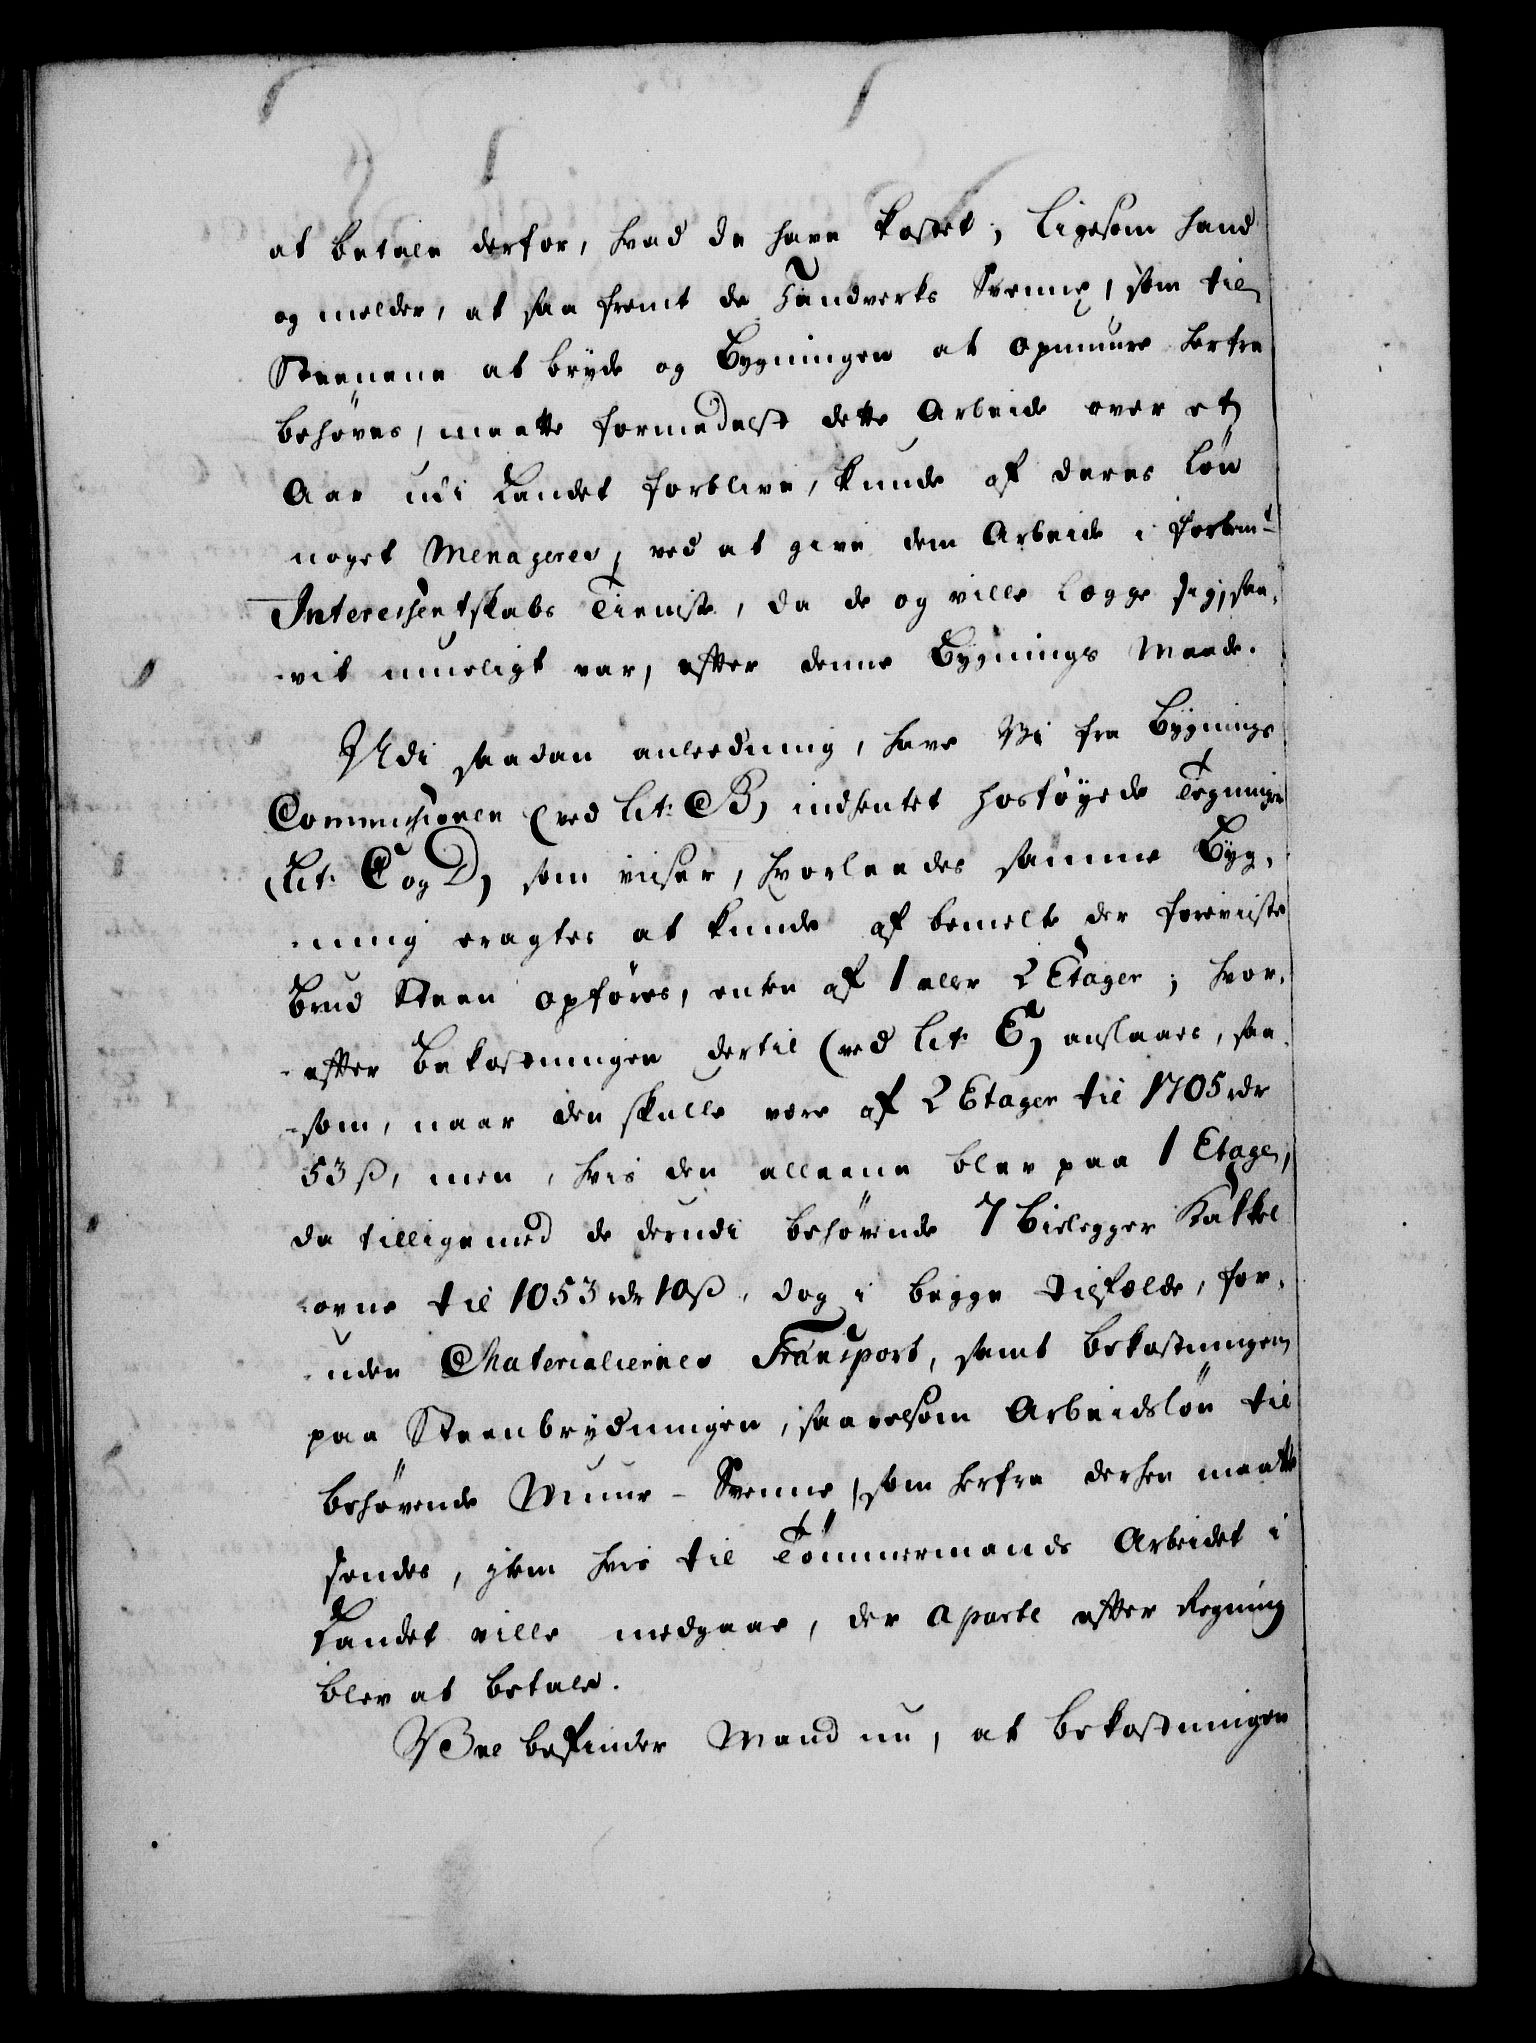 at betale derfor, hvad de have kostet; ligesom hand
og melder, at saa fremt de Handverks Svenne, som til
Steenene at bryde og Bygningen at opmuure herfra
behøves, maatte formedelst dette Arbeide over et
Aar udi Landet forblive, kunde af deres Løn
noget Menageres, ved at give dem Arbeide i forbem.t
Interessentskabs Tieniste, da de og ville legge sig, saa-
-vit mueligt var, efter denne Bygnings Maade.
Udi saadan anleedning, have Vi fra Bygnings
Commissionen (ved Lit: B) indhentet hosføyede Tegninger
(Lit: C og D) som viiser, hvorleedes samme Byg-
-ning eragtes at kunde af bemelte der foreviiste
Brud Steen opføres, enten af 1 eller 2 Etager; hvor-
-efter Bekostningen dertil (ved Lit: E) anslaaes, saa-
-som, naar den skulle være af 2 Etager til 1705 rdr
53 ß, men, hvis den alleene blev paa 1 Etage,
da tilligemed de derudi behøvende 7 Bielegger Kakkel
-ovne til 1053 rdr 10 ß, dog i begge Tilfælde, for-
-uden Materialiernes Transport, samt bekostningen
paa Steenbrydningen, saavelsom Arbeidsløn til
behøvende Muur-Svenne, som herfra derhen maatte
sendes, item hvis til Tømmermands Arbeidet i
Landet ville medgaae, der aparte efter Regning
blev at betale.
Vel befinder Mand nu, at bekostningen